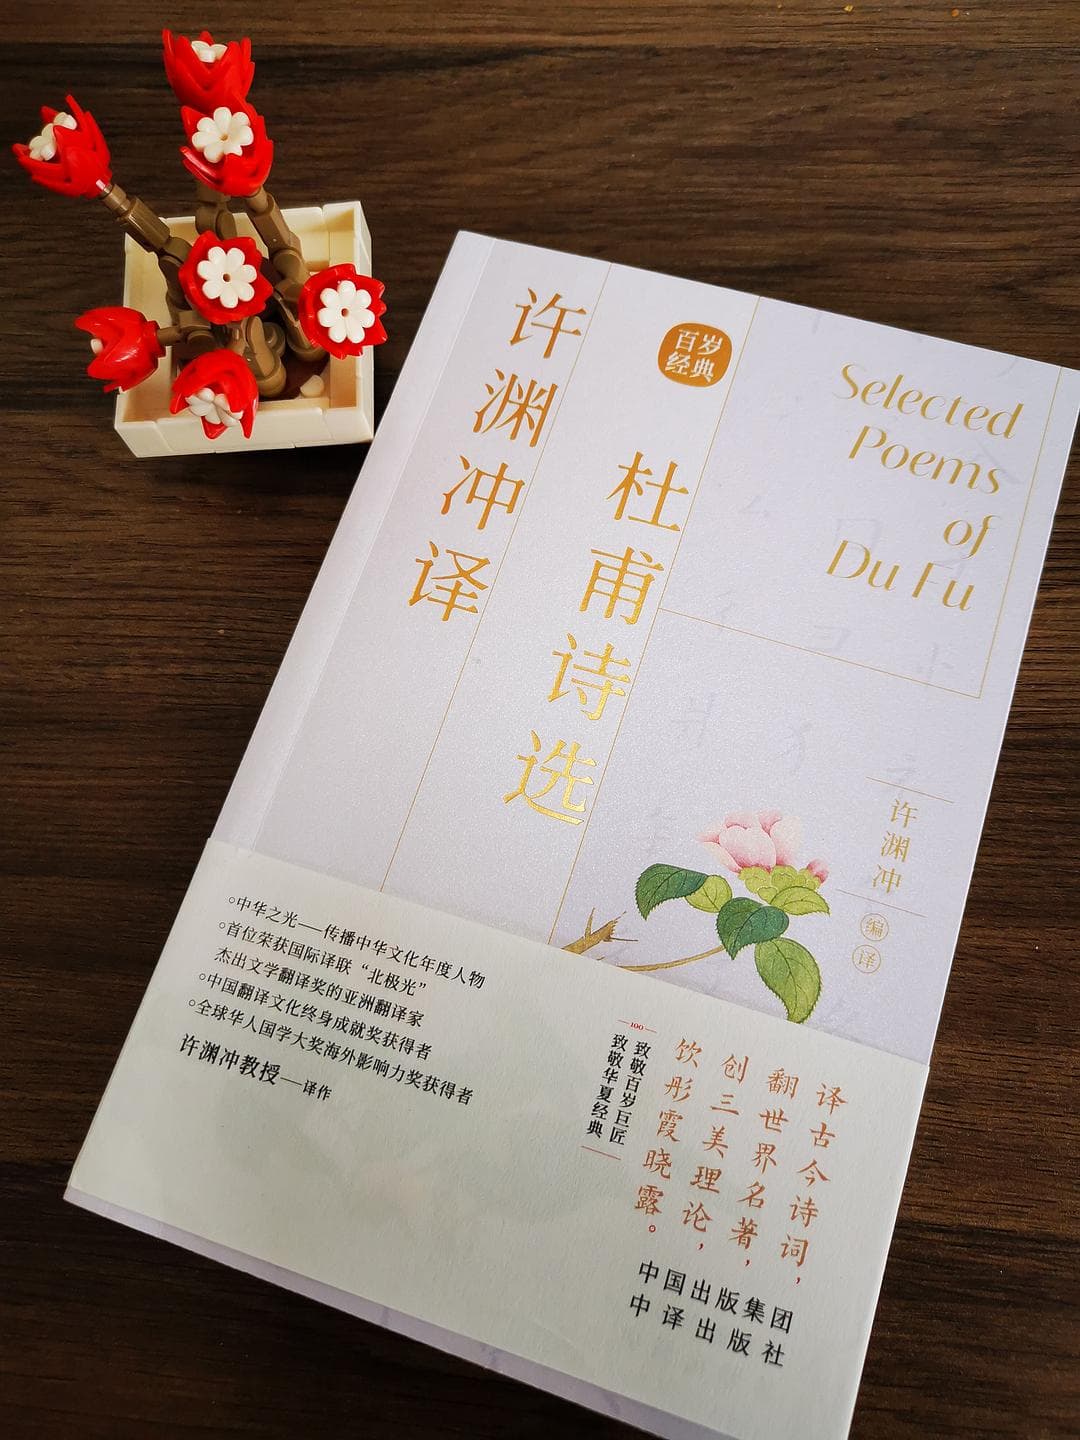 许渊冲译
百岁
经典
杜甫诗选
Selected
Poems
of
Du Fu
许渊冲
编
译
○中华之光——传播中华文化年度人物
○首位荣获国际译联“北极光”
杰出文学翻译奖的亚洲翻译家
○中国翻译文化终身成就奖获得者
○全球华人国学大奖海外影响力奖获得者
许渊冲教授——译作
100
致敬百岁巨匠
致敬华夏经典
译古今诗词，
翻世界名著，
创三美理论，
饮彤霞晓露。
中国出版集团
中译出版社